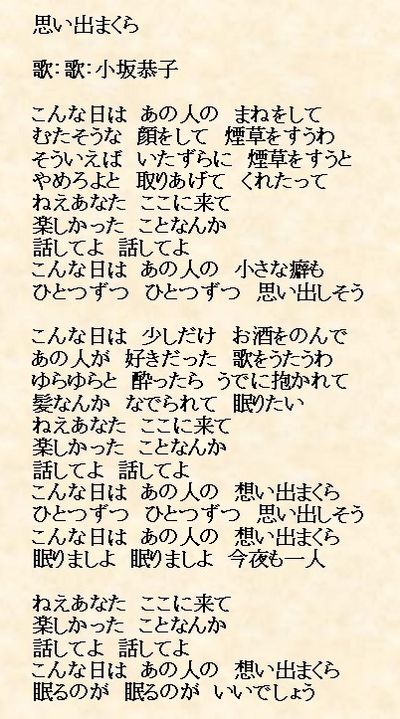 思い出まくら
歌：歌：小坂恭子
こんな日は　あの人の　まねをして
むたそうな　顔をして　煙草をすうわ
そういえば　いたずらに　煙草をすうと
やめろよと　取りあげて　くれたって
ねえあなた　ここに来て
楽しかった　ことなんか
話してよ　話してよ
こんな日は　あの人の　小さな癖も
ひとつずつ　ひとつずつ　思い出しそう
こんな日は　少しだけ　お酒をのんで
あの人が　好きだった　歌をうたうわ
ゆらゆらと　酔ったら　うでに抱かれて
髪なんか　なでられて　眠りたい
ねえあなた　ここに来て
楽しかった　ことなんか
話してよ　話してよ
こんな日は　あの人の　想い出まくら
ひとつずつ　ひとつずつ　思い出しそう
こんな日は　あの人の　想い出まくら
眠りましよ　眠りましよ　今夜も一人
ねえあなた　ここに来て
楽しかった　ことなんか
話してよ　話してよ
こんな日は　あの人の　想い出まくら
眠るのが　眠るのが　いいでしょう